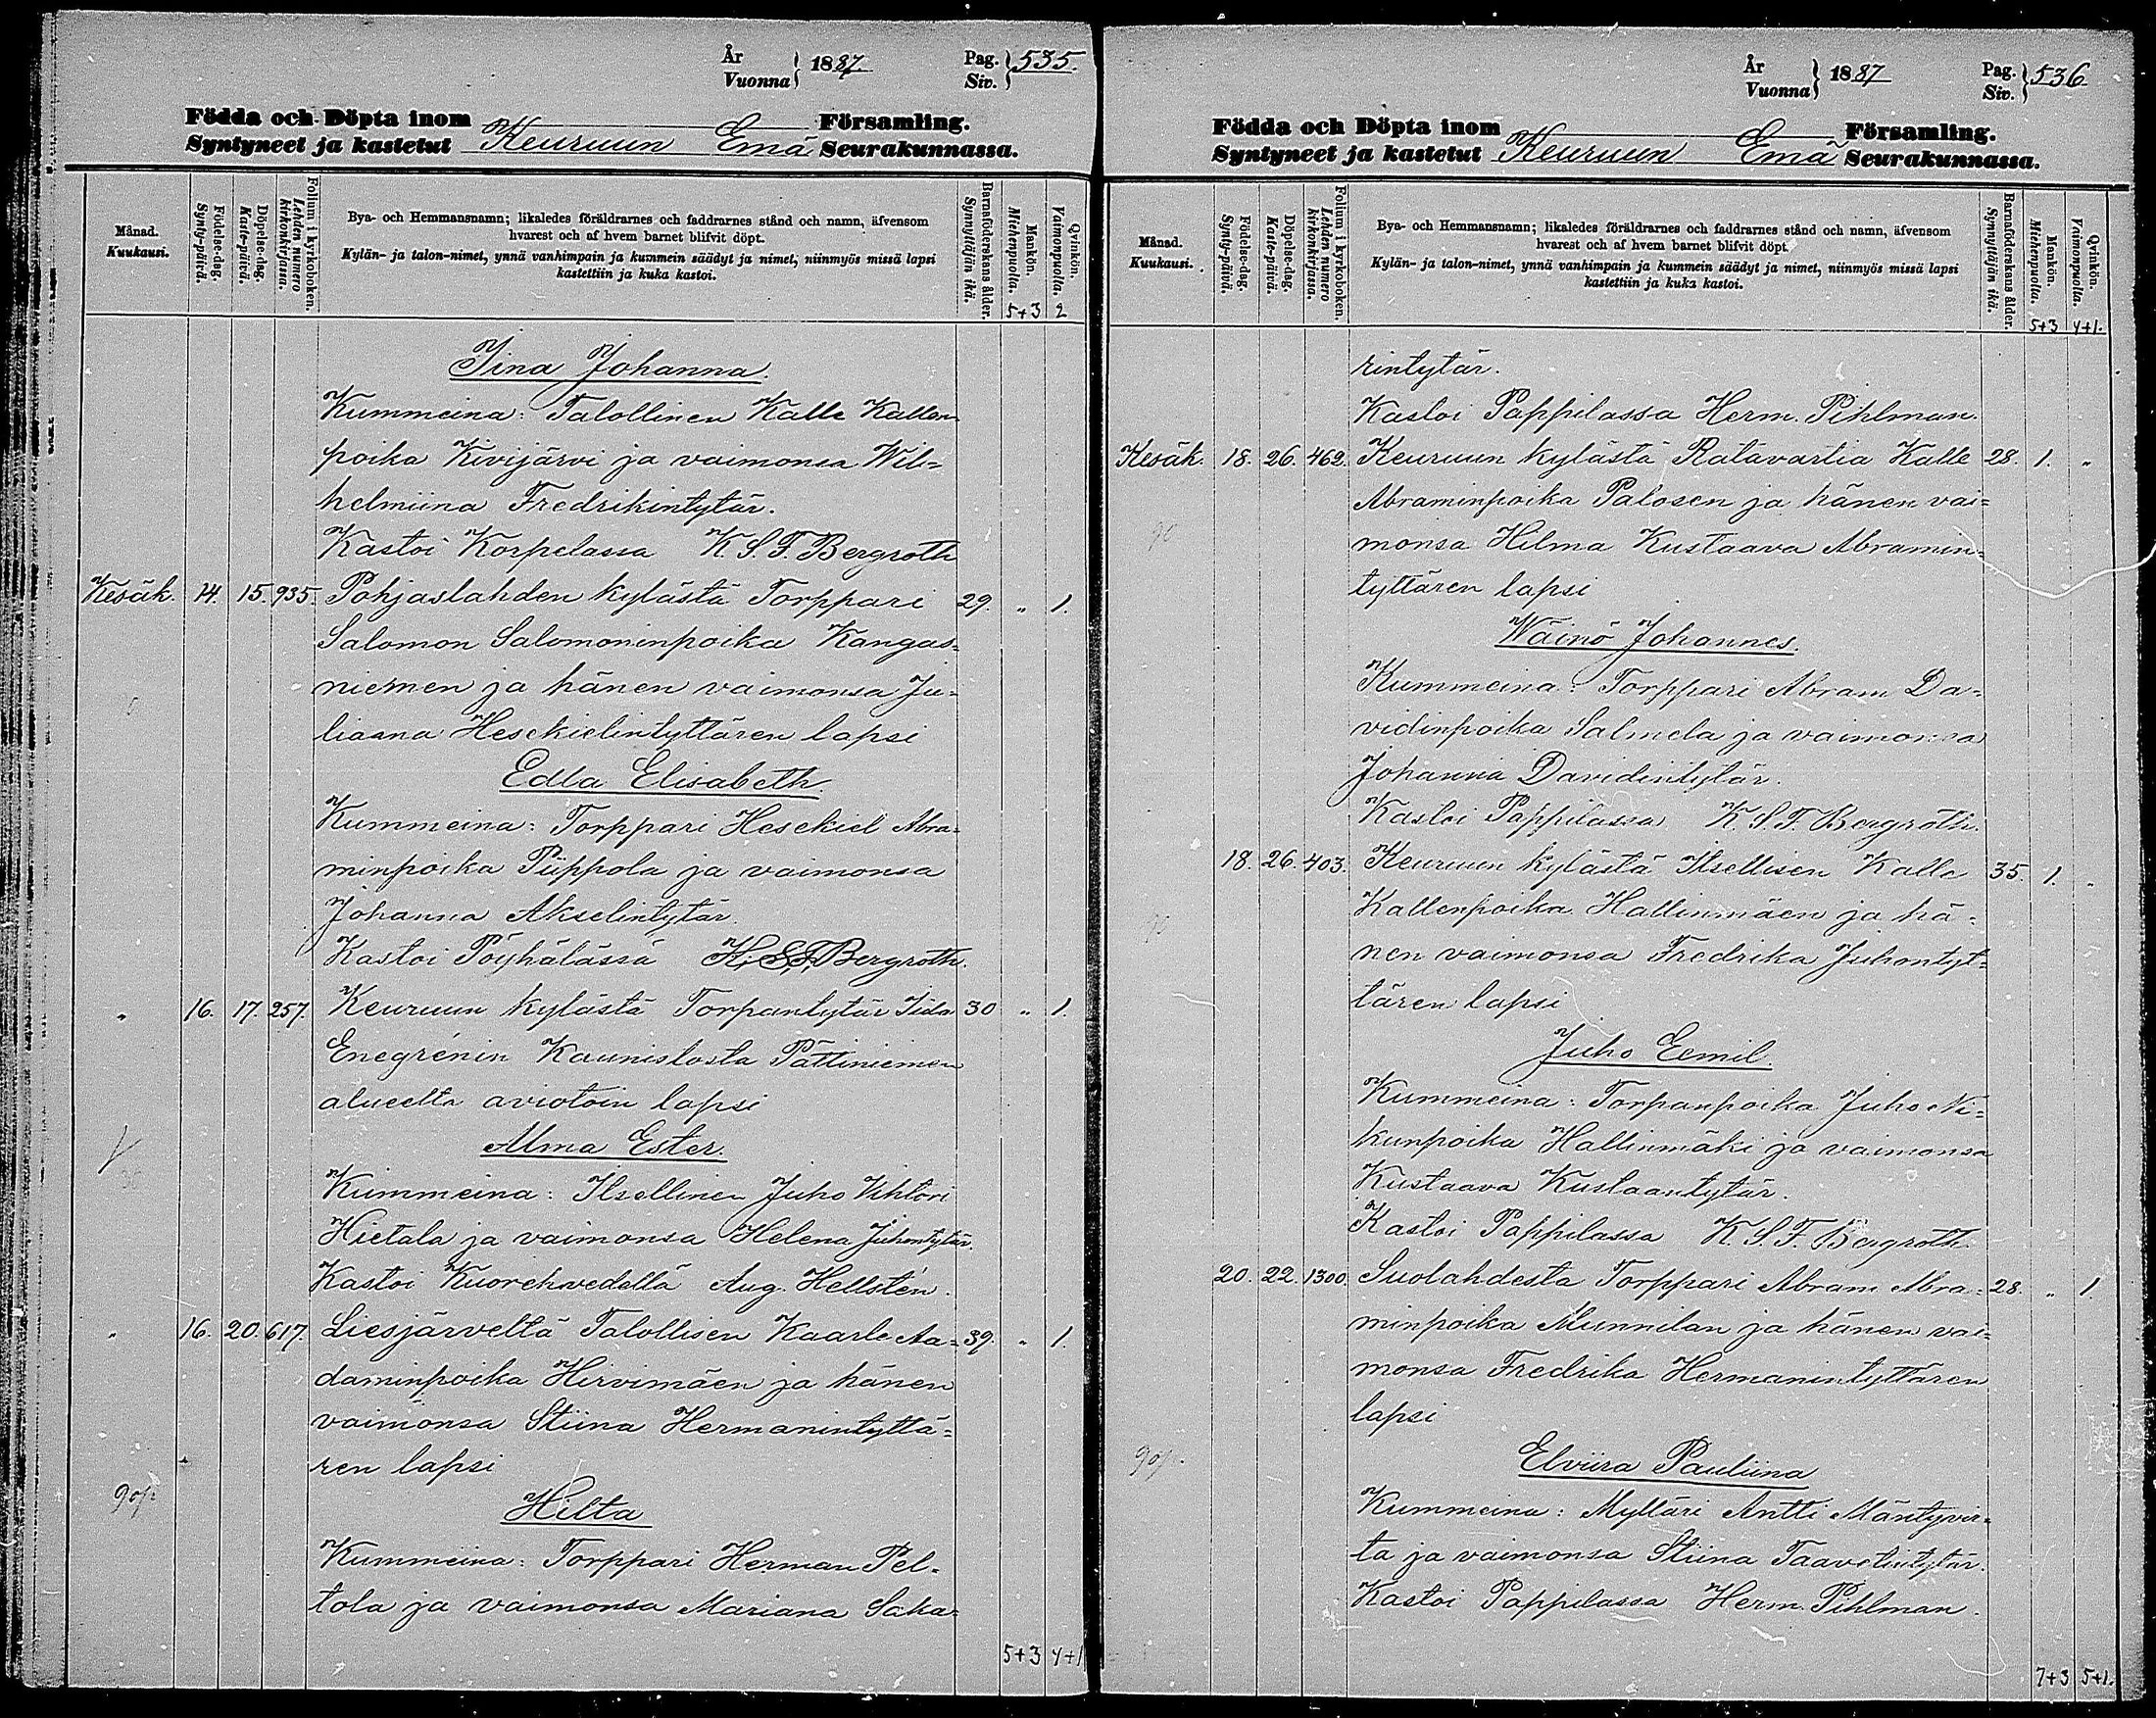 År
Vuonna } 1887.
Pag.
Siv. } 535.
Födda och Döpta inom
Syntyneet ja kastetut Keuruun Emä Församling.
Seurakunnassa.
Månad.
Kuukausi.
Födelse-dag.
Synty-päivä.
Döpelse-dag.
Kaste-päivä.
Folium i kyrkoboken.
Lehden numero
kirkonkirjassa.
Bya- och Hemmansnamn; likaledes föräldrarnes och faddrarnes stånd och namn, äfvensom
hvarest och af hvem barnet blifvit döpt.
Kylän- ja talon-nimet, ynnä vanhimpain ja kummein säädyt ja nimet, niinmyös missä lapsi
kastettiin ja kuka kastoi.
Barnaföderskans ålder.
Synnyttäjän ikä.
Mankön.
Miehenpuolia.
Qvinkön.
Vaimonpuolia.
5+3 2
Iina Johanna.
Kummeina: Talollinen Kalle Kallen
poika Kivijärvi ja vaimonsa Wil=
helmiina Fredrikintytär.
Kastoi Korpelassa K S F. Bergroth
Kesäk. 14. 15. 935. Pohjaslahden kylästä Torppari 29. " 1.
Salomon Salomoninpoika Kangas=
niemen ja hänen vaimonsa Ju=
liaana Hesekielintyttären lapsi
Edla Elisabeth.
Kummeina: Torppari Hesekiel Abra=
minpoika Piippola ja vaimonsa
Johanna Akselintytär.
Kastoi Pöyhälässä K. S. F. Bergroth.
" 16. 17. 257. Keuruun kylästä Torpantytär Iida 30 " 1.
Enegrénin Kaunistosta Pättiniemen
alueelta aviotoin lapsi
Alma Ester.
Kummeina: Itsellinen Juho Vihtori
Hietala ja vaimonsa Helena Juhontytär.
Kastoi Kuorehvedellä Aug. Hellstén.
" 16. 20. 617. Liesjärveltä Talollisen Kaarle Aa= 39. " 1.
daminpoika Hirvimäen ja hänen
vaimonsa Stiina Hermanintyttä=
ren lapsi
90/2
Hilta
Kummeina: Torppari Herman Pel=
tola ja vaimonsa Mariana Saka=
5+3 4+1
År
Vuonna } 1887
Pag.
Siv. } 536.
Födda och Döpta inom
Syntyneet ja kastetut Keuruun Emä Församling.
Seurakunnassa.
Månad.
Kuukausi.
Födelse-dag.
Synty-päivä.
Döpelse-dag.
Kaste-päivä.
Folium i kyrkoboken.
Lehden numero
kirkonkirjassa.
Bya- och Hemmansnamn; likaledes föräldrarnes och faddrarnes stånd och namn, äfvensom
hvarest och af hvem barnet blifvit döpt.
Kylän- ja talon-nimet, ynnä vanhimpain ja kummein säädyt ja nimet, niinmyös missä lapsi
kastettiin ja kuka kastoi.
Barnaföderskans ålder.
Synnyttäjän ikä.
Mankön.
Miehenpuolia.
Qvinkön.
Vaimonpuolia.
5+3 4+1.
rintytär.
Kastoi Pappilassa Herm. Pihlman.
Kesäk. 18. 26. 462. Keuruun kylästä Ratavartia Kalle 28. 1. "
Abraminpoika Palosen ja hänen vai=
monsa Hilma Kustaava Abramin=
tyttären lapsi
Wäinö Johannes.
Kummeina: Torppari Abram Da=
vidinpoika Salmela ja vaimonsa
Johanna Davidintytär.
Kastoi Pappilassa K. S. F. Bergroth.
18. 26. 403. Keuruun kylästä Itsellisen Kalle 35. 1. "
Kallenpoika Hallinmäen ja hä=
nen vaimonsa Fredrika Juhontyt=
tären lapsi
Juho Eemil.
Kummeina: Torpanpoika Juho Ni=
kunpoika Hallinmäki ja vaimonsa
Kustaava Kustaantytär.
Kastoi Pappilassa K. S. F. Bergroth
20. 22. 1300. Suolahdesta Torppari Abram Abra= 28. " 1
minpoika Munnilan ja hänen vai=
monsa Fredrika Hermanintyttären
lapsi
Elviira Pauliina
Kummeina: Mylläri Antti Mäntyvir=
ta ja vaimonsa Stiina Taavetintytär.
Kastoi Pappilassa Herm. Pihlman.
7+3 5+1.